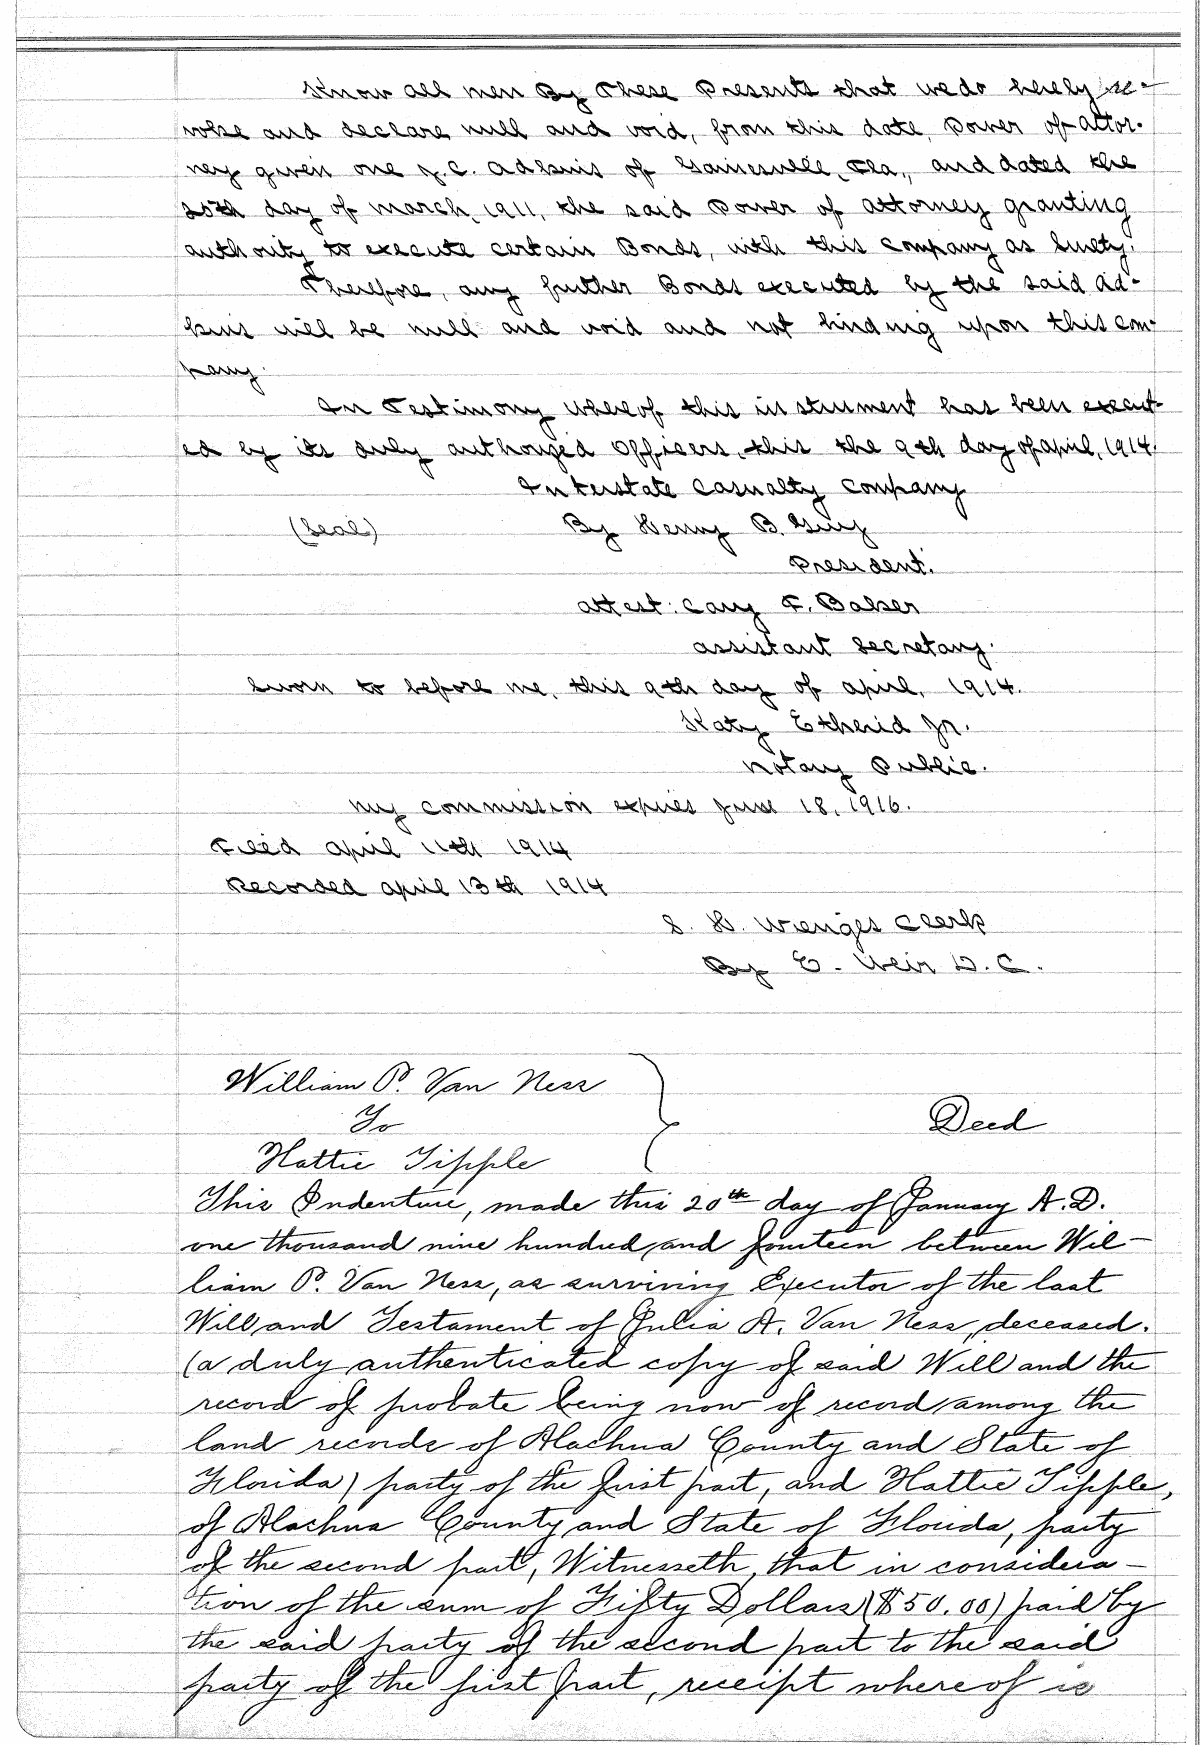 Know all men By These Presents that we do hereby re-
voke and declare null and void, from this date, Power of attor-
ney given one J.C. Adkins of Gainesville, Fla., and dated the
20th day of March, 1911, the said Power of attorney granting
authority to execute certain Bonds, with this company as Surety.
Therefore, any further Bonds executed by the said Ad-
kins will be null and void and not binding upon this com-
pany.
In Testimony whereof this instrument has been execut-
ed by its duly authorized officers, this the 9th day of april, 1914.
Interstate Casualty Company
(Seal) By Henry B. Gray
President.
attest: Cary F. Baker
assistant Secretary.
Sworn to before me, this 9th day of april, 1914.
Katy Etherid Jr.
Notary Public.
My commission expires June 18, 1916.
Filed april 11th 1914
Recorded april 13th 1914
S. H. Wienges Clerk
By E. Weir D.C.
William P. Van Ness
To Deed
Hattie Tipple
This Indenture, made this 20th day of January A.D.
one thousand nine hundred and fourteen between Wil-
liam P. Van Ness, as surviving Executor of the last
Will and Testament of Julia A. Van Ness, deceased.
(a duly authenticated copy of said Will and the
record of probate being now of record among the
land records of Alachua County and State of
Florida) party of the first part, and Hattie Tipple,
of Alachua County and State of Florida, party
of the second part, Witnesseth, that in considera-
tion of the sum of Fifty Dollars ($50.00) paid by
the said party of the second part to the said
party of the first part, receipt whereof is